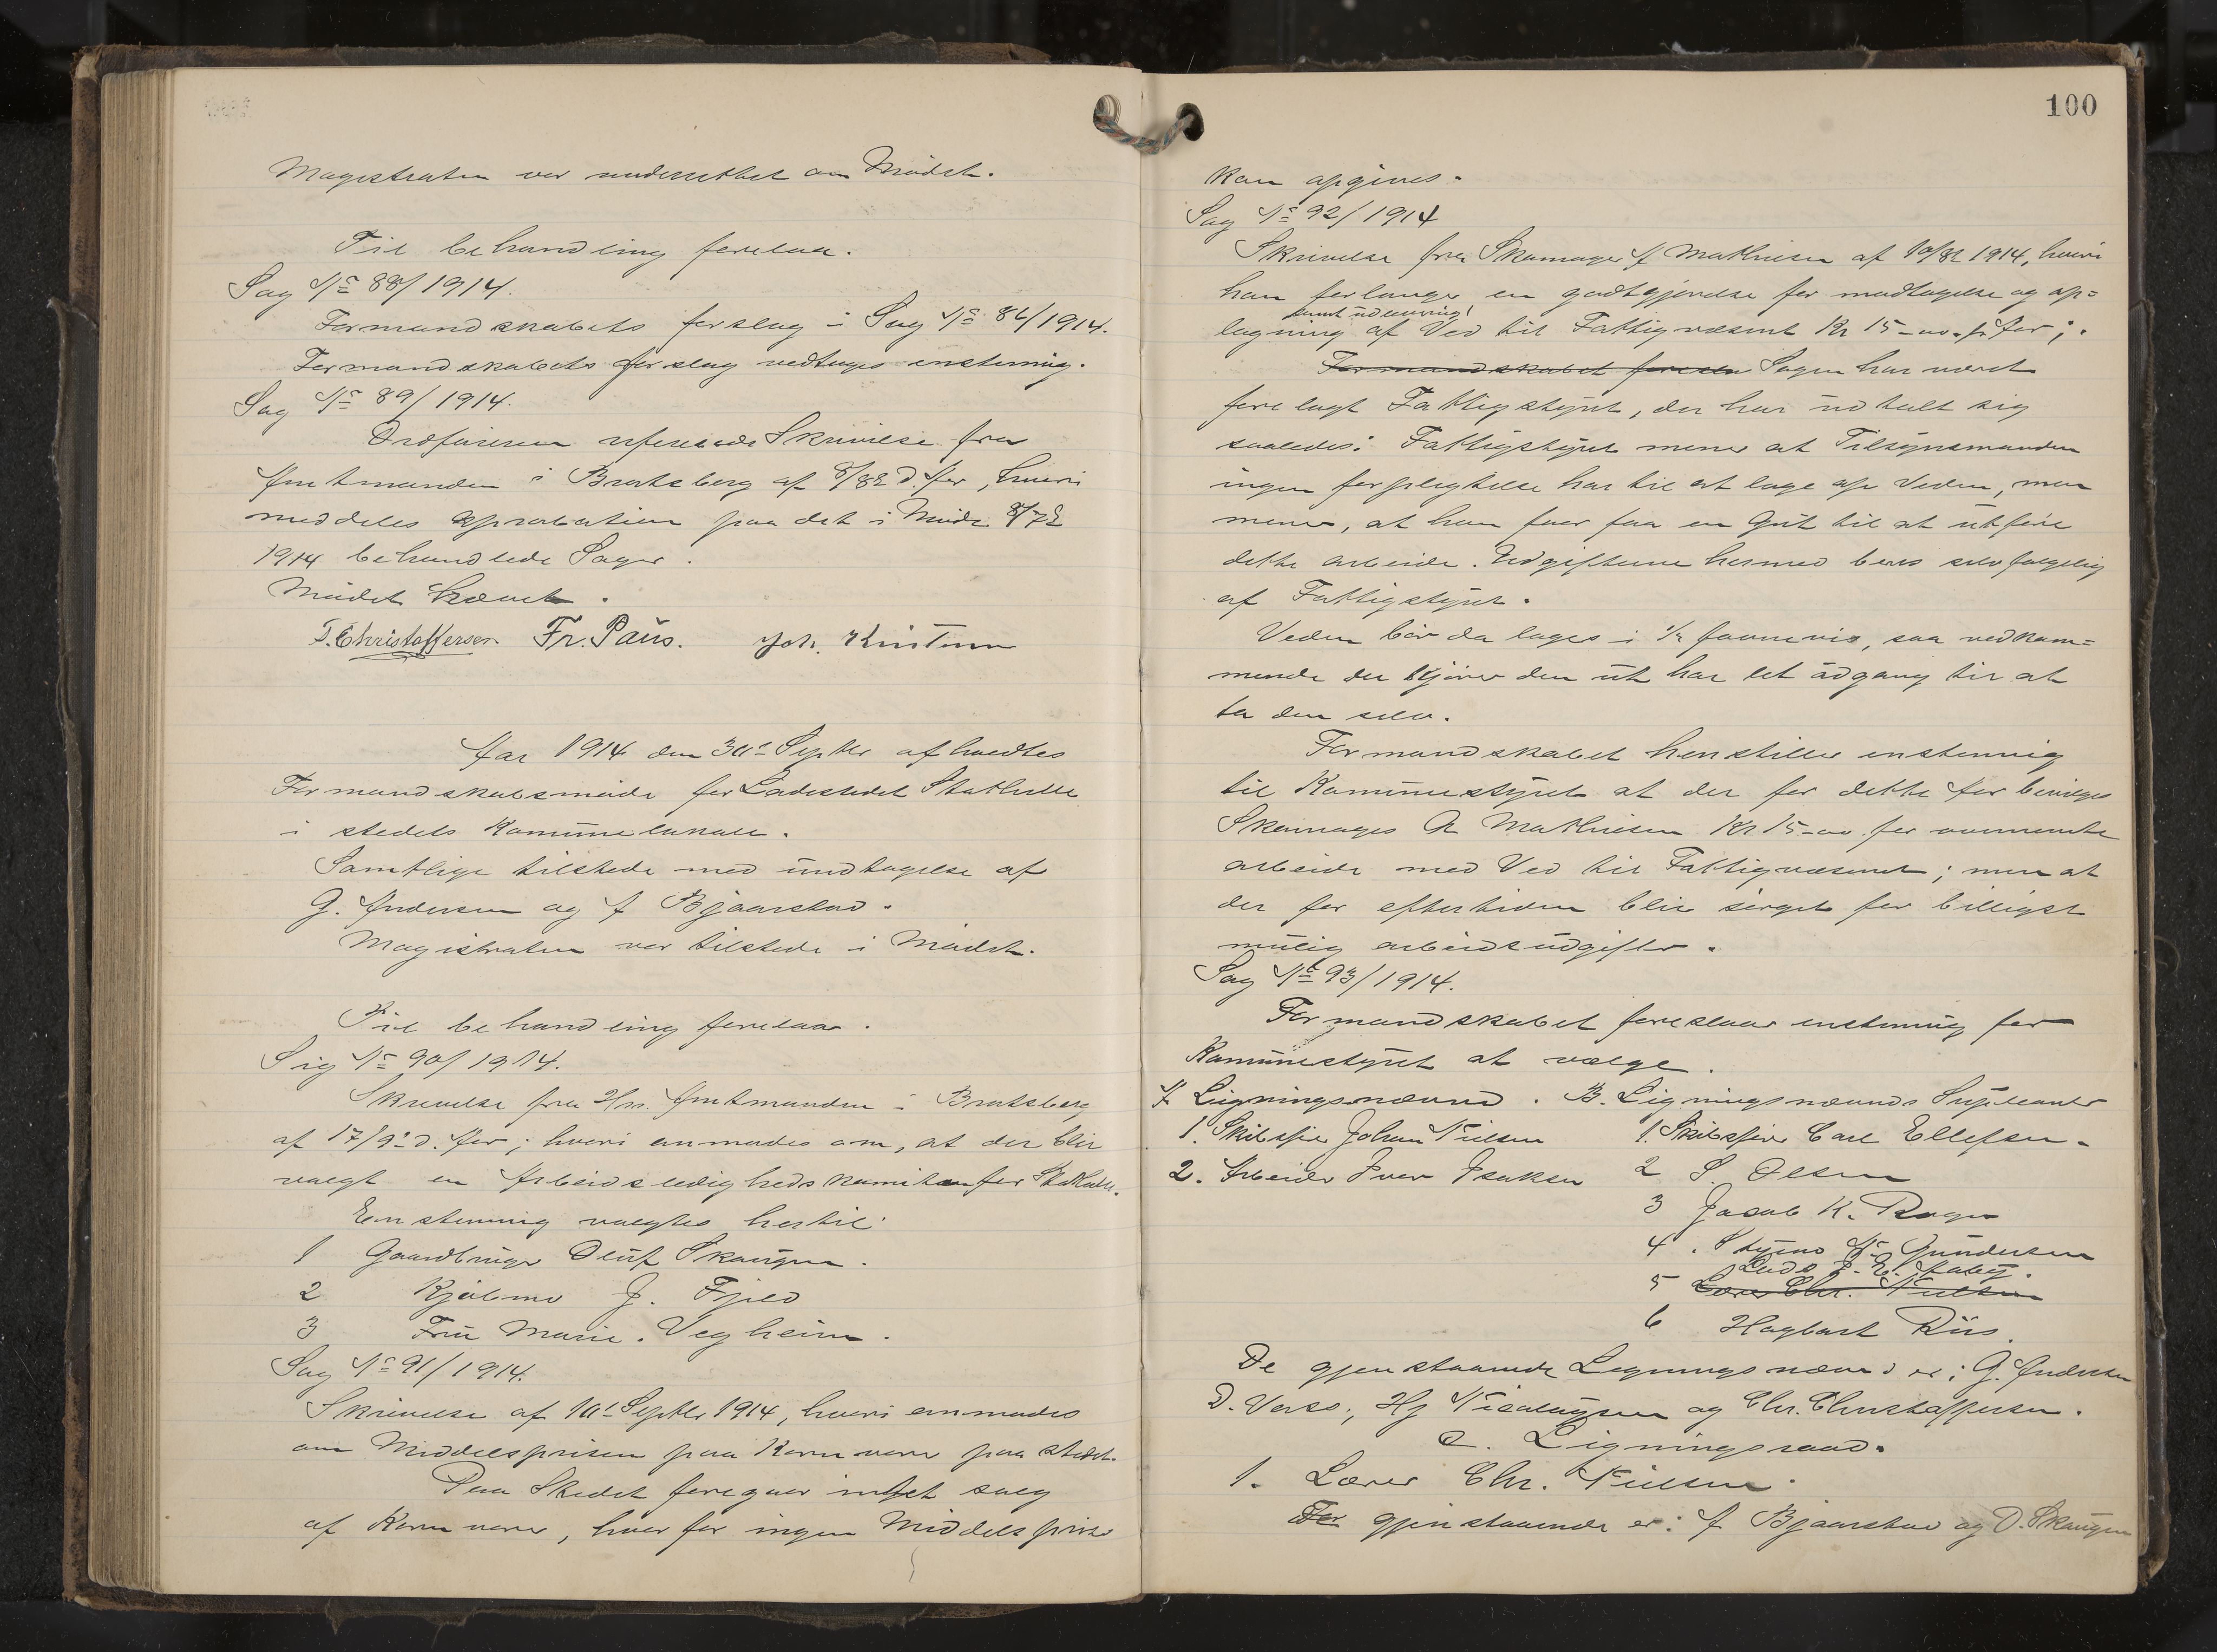 Magistraten var underrettet om Mödet.
Til behandling forelaa.
Sag No 88/1914.
Formandskabets forslag i Sag No 86/1914.
Formandskabets forslag vedtages enstemig.
Sag No 89/1914.
Ordføreren refererede Skrivelse fra
Amtmanden i Bratsberg af d. Aar, hvori
meddeles approbation paa det i Möde
1914 behandlede Sager.
Mödet hævet.
T. Christoffersen Fr. Paus. Joh.
Aar 1914 den 30te Septbr afholdtes
Formandskabsmöde for Ladestedet Stathelle
i stedets Komunelokale.
Samtlige tilstede med undtagelse af
G. Andersen og A Bjaarstad.
Magistraten var tilstede i Mödet.
Til behandling forelaa.
Sag No 90/1914.
Skrivelse fra Hrr. Amtmanden i Bratsberg
af 17/9 d. Aar; hvori anmodes om, at der blir
valgt en Arbeidsledighedskomite for Stathelle.
Enstemmig valgtes hertil:
1 Gaardbruger Oluf Skaugen.
2 Kjøbmd J. Fjeld
3 Fru Marie Vegheim.
Sag No 91/1914.
Skrivelse af 10de Septbr 1914, hvori anmodes
om Middelsprisen paa Kornvarer paa stedet.
Paa Stedet foregaar intet salg
af Kornvarer, hvorfor ingen Middelspris
100
kan opgives.
Sag No 92/1914
Skrivelse fra Skomager A Mathiesen af 1914, hvori
han forlanger en godtgjørelse for modtagelse og op=
samt udlevering
lægning af Ved til Fattigvæsenet Kr 15-00 pr Aar;
Formandskabet Sagen har været
forelagt Fattigstyret, der har udtalt sig
saaledes: Fattigstyret mener at Tilsynsmanden
ingen forpligtelse har til at lage op Veden, men
mener, at han faar faa en Gut til at utføre
dette arbeide. Udgifterne hermed bæres selvfølgelig
af Fattigstyret.
Veden bør da lages i 1/2 favnevis, saa vedkom=
mende der kjører den ut har let adgang til at
ta den selv.
Formandskabet henstiller enstemmig
til Komunestyret at der for dette Aar bevilges
Skomager A Mathiesen Kr 15-00 for ovennævnte
arbeide med Ved til Fattigvæsenet; men at
der for eftertiden blir sørget for billigst
mulig arbeidsudgifter.
Sag No 93/1914.
Formandskabet foreslaar enstemig for
Komunestyret at vælge.
A Ligningsnævnd. B. Ligningsnævnds Supleanter
1. Skibsfører Johan Nielsen 1. Skibsfører Carl Ellefsen.
2. Arbeider Iver Isaksen 2 S. Olsen
3 Jacob K. Roger
4. Styrmd N. Gundersen
Lods J. E. Aaby.
5 Lærer Chr. Nielsen
6 Hagbart Riis.
De gjenstaaende Ligningsnævnd er; G. Andersen
D. Vorso, Hj Nicolaysen og Chr. Christoffersen.
C. Ligningsraad.
1. Lærer Chr. Nielsen.
For gjenstaaende er: A Bjaarstad og O. Skaugen